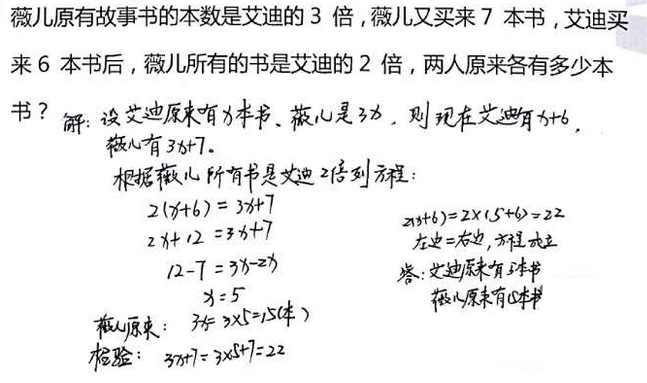 薇儿原有故事书的本数是艾迪的 3 倍，薇儿又买来 7 本书，艾迪买
来 6 本书后，薇儿所有的书是艾迪的 2 倍，两人原来各有多少本
书？
解：设艾迪原来有x本书、薇儿是3x，则现在艾迪有x+6，
薇儿有3x+7。
根据薇儿所有书是艾迪2倍列方程：
2(x+6) = 3x+7
2x+12 = 3x+7
12-7 = 3x-2x
x = 5
薇儿原来：3x = 3×5=15(本)
检验：3x+7 = 3×5+7=22
2(x+6) = 2×(5+6) = 22
左边=右边，方程成立
答：艾迪原来有5本书
薇儿原来有15本书